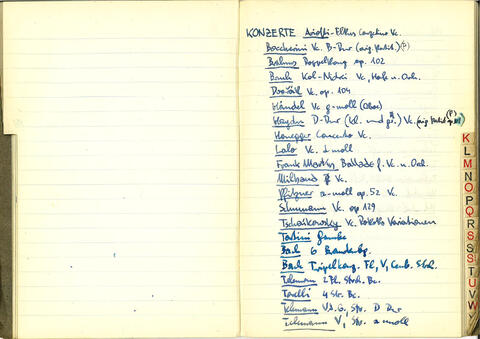 KONZERTE Ariosti-Elkus Concertino Vc.
Boccherini Vc. B-Dur (orig. Partit.) (P)
Brahms Doppelkonz. op. 102
Bruch Kol-Nidrei Vc, Harfe u. Orch.
Dvořák Vc. op. 104
Händel Vc g-moll (Oboe)
Haydn D-Dur (kl. und gr.) Vc. (orig. Partit. (P)
Honegger Concerto Vc.
Lalo Vc. d moll
Frank Martin Ballade f. Vc. u. Orch.
Milhaud Vc.
Pfitzner a-moll op. 52 Vc.
Schumann Vc. op 129
Tschaikowsky Vc. Rokoko Variationen
Tartini Gambe
Bach 6 Brandenbg.
Bach Tripelkonz. Fl, V, Cemb. Str.
Telemann 2 Fl. Streich. Bc.
Torelli 4 Str. Bc.
Telemann V.d.G., Str. D Dur
Telemann V, Str. a moll
K
L
M
N
O
P
Q
R
S
S
S
T
U
V
W